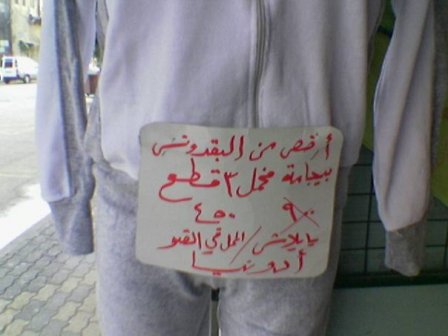 أرخص من البقدونس
بيجامة مخمل ٣ قطع
٩٠٠ ٤٥٠
يا بلاش / المحل في القبو
أدونيا